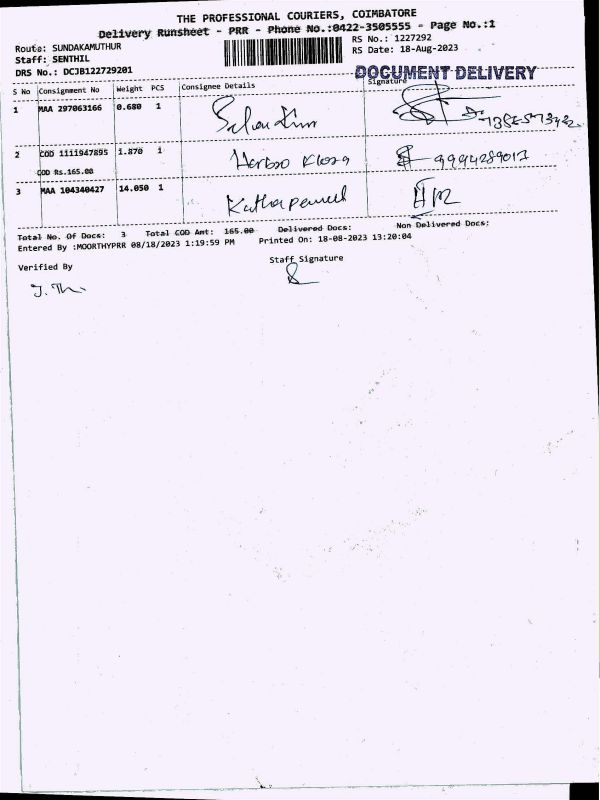 THE PROFESSIONAL COURIERS, COIMBATORE
Delivery Runsheet - PRR - Phone No.:0422-3505555 - Page No.:1
Route: SUNDAKAMUTHUR
RS No.: 1227292
Staff: SENTHIL
RS Date: 18-Aug-2023
DRS No.: DCJB122729201
DOCUMENT DELIVERY
S No Consignment No Weight PCS Consignee Details Signature
1 MAA 297063166 0.680 1
2 COD 1111947895 1.870 1 9994289017
COD Rs.165.00
3 MAA 104340427 14.050 1
Total No. Of Docs: 3 Total COD Amt: 165.00 Delivered Docs: Non Delivered Docs:
Entered By :MOORTHYPRR 08/18/2023 1:19:59 PM Printed On: 18-08-2023 13:20:04
Verified By Staff Signature